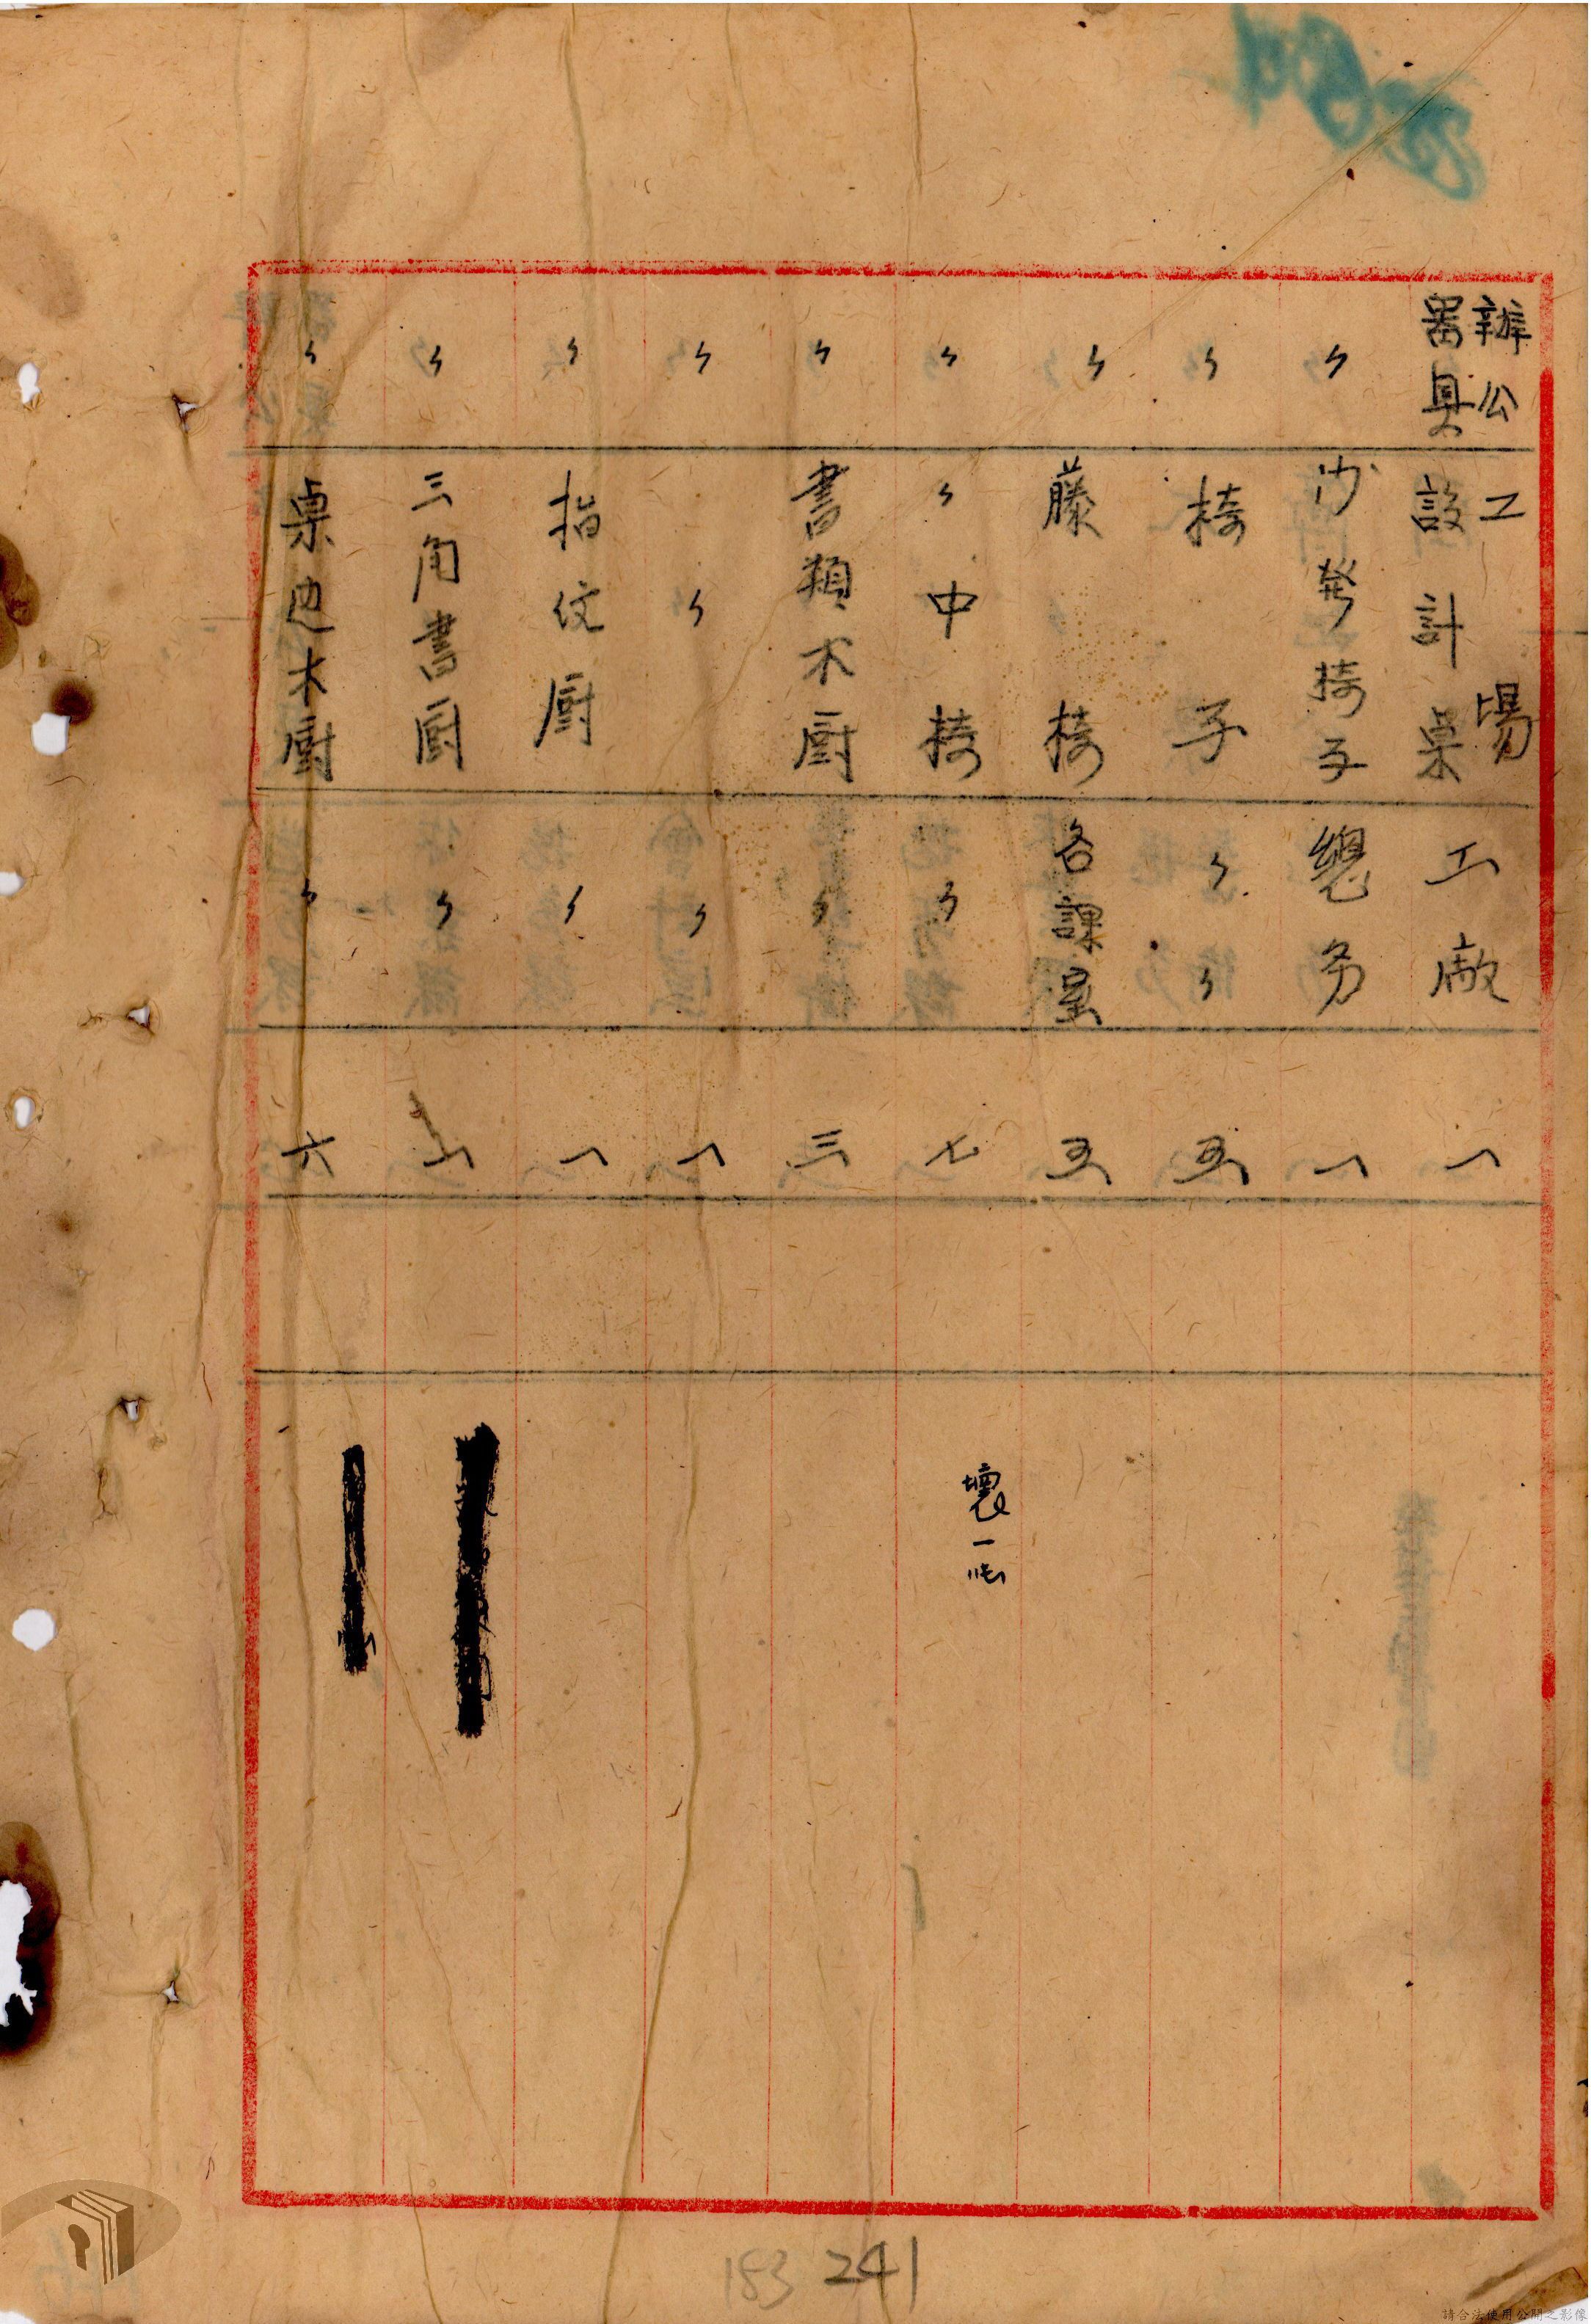 辦公器具 工場設計桌 工廠 一
〃 沙發椅子 總務 一
〃 椅子 〃〃 五
〃 藤椅 各課室 五
〃 〃中椅 〃 七 壞一
〃 書類木厨 〃 三
〃 〃 〃 一
〃 指紋厨 〃 一
〃 三角書厨 〃
〃 桌边木厨 〃 六
183 241
請合法使用公開之影像